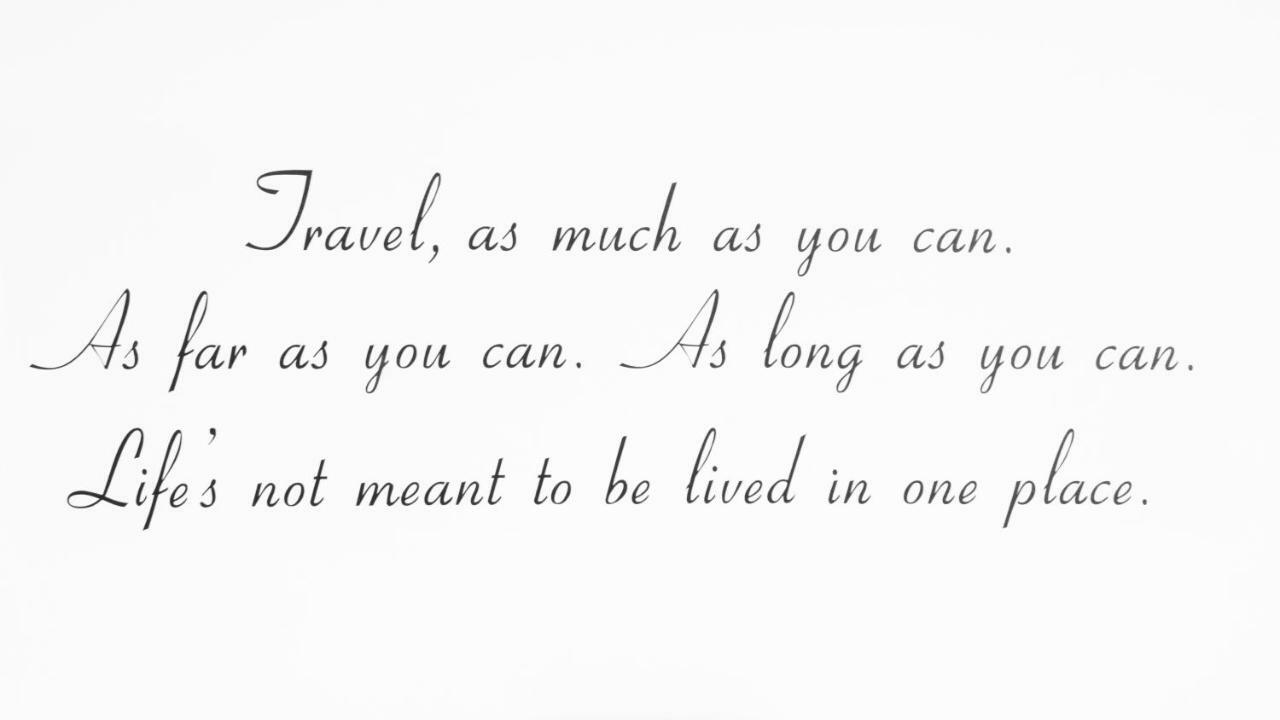 Travel, as much as you can.
As far as you can. As long as you can.
Life's not meant to be lived in one place.